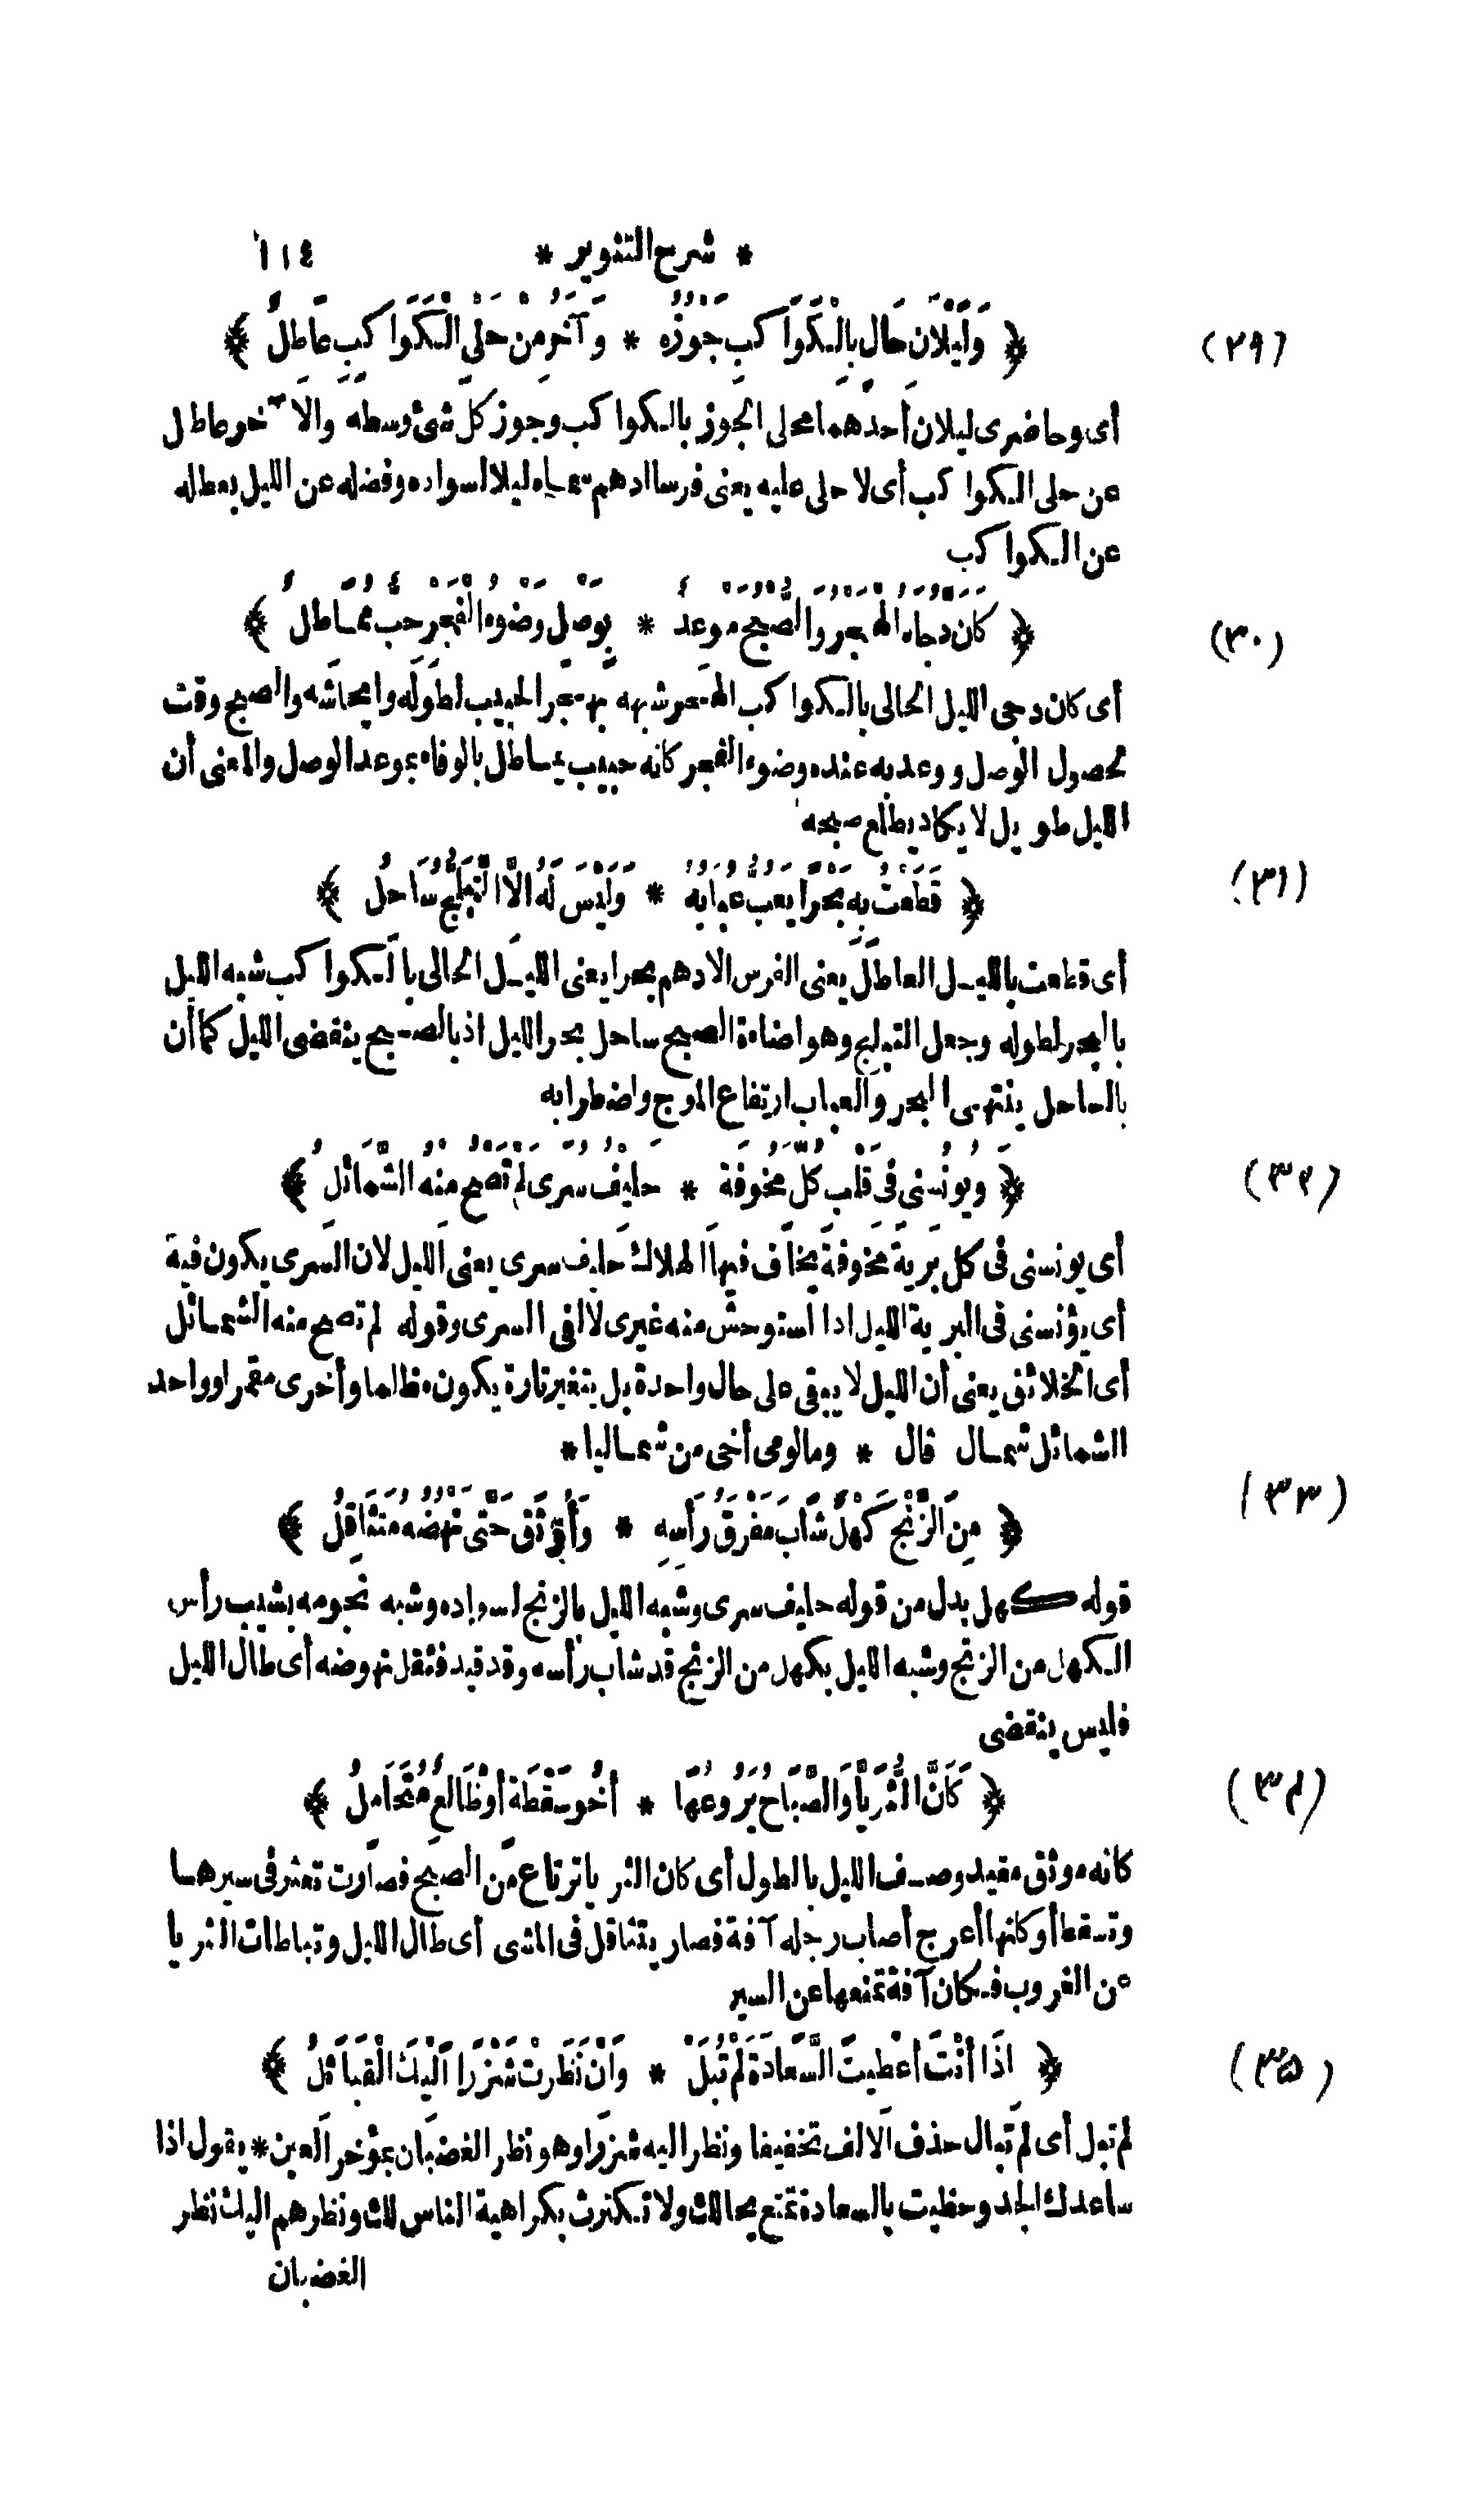 * شرح التنوير * ١١٤
(٢٩) ﴿ وَلَيْلَانِ حَالٍ بِالْكَوَاكِبِ جَوْزُهُ * وَآخَرُ مِنْ حَلْيِ الْكَوَاكِبِ عَاطِلُ ﴾
أى وحاضرى ليلان أحدهما محلى الجوز بالكواكب وجوز كل شئ وسطه والآخر عاطل
عن حلى الكواكب أى لا حلى عليه يعنى فرسا ادهم سماه ليلا لسواده وفضله عن الليل بعطله
عن الكواكب
(٣٠) ﴿ كَأَنَّ دُجَاهُ الْهَجْرُ وَالصُّبْحُ مَوْعِدٌ * بِوَصْلٍ وَضَوْءُ الْفَجْرِ حِبٌّ مُمَاطِلُ ﴾
أى كان دجى الليل الحالى بالكواكب الهجر شبهه بهجر الحبيب لطوله وايحاشه والصبح وقت
لحصول الوصل ووعد به عنده وضوء الفجر كانه حبيب يماطل بالوفاء بموعد الوصل والمعنى أن
الليل طويل لا يكاد يطلع صبحه
(٣١) ﴿ قَطَعْتُ بِهِ بَحْرًا يَعُبُّ عُبَابُهُ * وَلَيْسَ لَهُ الَّا التَّبَلُّجَ سَاحِلُ ﴾
أى قطعت بالليل العاطل يعنى الفرس الادهم بحرا يعنى الليل الحالى بالكواكب شبه الليل
بالبحر لطوله وجعل التبلج وهو اضاءة الصبح ساحل بحر الليل اذ بالصبح ينقضى الليل كما أن
بالساحل ينتهى البحر والعباب ارتفاع الموج واضطرابه
(٣٢) ﴿ وَيُؤْنِسُنِى فِى قَلْبِ كُلِّ مَخُوفَةٍ * حَلِيفُ سُرًى لَمْ تَصْحُ مِنْهُ الشَّمَائِلُ ﴾
أى يونسنى فى كل برية مخوفة يخاف فيها الهلاك حليف سرى يعنى الليل لان السرى يكون فيه
أى يؤنسنى فى البرية الليل اذا استوحش منه غيرى لالفى السرى وقوله لم تصح منه الشمائل
أى الخلائق يعنى أن الليل لا يبقى على حال واحدة بل يتغير تارة يكون مظلما وأخرى مقمرا وواحد
الشمائل شمال قال * وما لومى أخى من شماليا *
(٣٣) ﴿ مِنَ الزَّنْجِ كَهْلٌ شَابَ مَفْرِقُ رَأْسِهِ * وَأُوثِقَ حَتَّى نَهْضُهُ مُتَثَاقِلُ ﴾
قوله كهل بدل من قوله حليف سرى وشبه الليل بالزنج لسواده وشبه نجومه بشيب رأس
الكهل من الزنج وشبه الليل بكهل من الزنج قد شاب رأسه وقد قيد فثقل نهوضه أى طال الليل
فليس ينقضى
(٣٤) ﴿ كَأَنَّ الثُّرَيَّا وَالصَّبَاحُ يَرُوعُهَا * أَخُو سَقْطَةٍ أَوْ ظَالِعٌ مُتَحَامِلُ ﴾
كانه موثق مقيد وصف الليل بالطول أى كان الثريا ترتاع من الصبح فصارت تعثر فى سيرها
وتسقط أو كانها أعرج أصاب رجله آفة فصار يتثاقل فى المشى أى طال الليل وتباطات الثريا
عن الغروب فكان آفة تمنعها عن السير
(٣٥) ﴿ اذَا أنْتَ أعْطِيتَ السَّعَادَةَ لَمْ تُبَلْ * وَانْ نَظَرَتْ شَزْرًا الَيْكَ الْقَبَائِلُ ﴾
لم تبل أى لم تبال حذف الالف تخفيفا ونظر اليه شزرا وهو نظر الغضبان بمؤخر العين * يقول اذا
ساعدك الجد وحظيت بالسعادة تمتع بحالك ولا تكترث بكراهية الناس لك ونظرهم اليك نظر
الغضبان